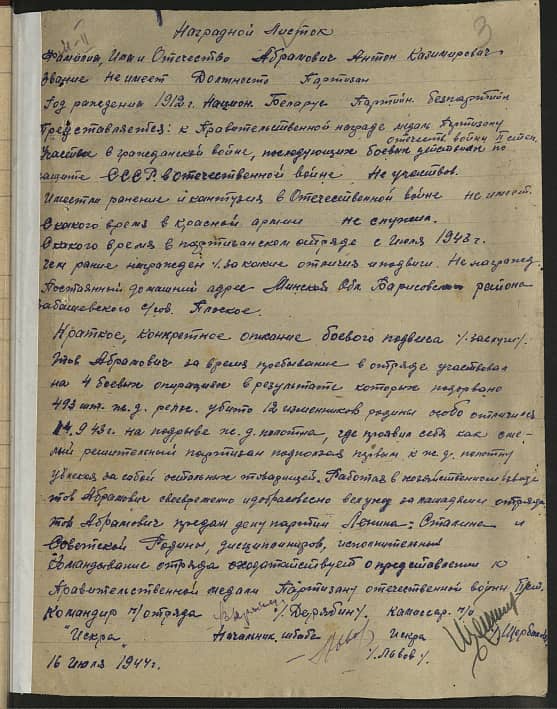 3
Наградной Листок
Фамилия, Имя и Отчество Абрамович Антон Казимирович
Звание Не имеет Должность Партизан
Год рождения 1912 г. Национ. Беларус Партийн. безпартийн
Представляется: к Правительственной награде медаль Партизану
отечеств войны II степ.
Участие в гражданской войне, последующих боевых действиях по
защите СССР в отечественной войне Не участвов.
Имеет ли ранение и контузия в Отечественной войне не имеет.
С какого время в красной армии не служил.
С какого время в партизанском отряде с Июля 1943 г.
Чем ранее награжден /. за какие отличия и подвиги. Не награжд.
Постоянный домашний адрес Минской Обл. Борисовского района
Забашевского с/сов. Плоское.
Краткое, конкретное описание боевого подвига /. заслуги/.
Тов Абрамович за время пребывание в отряде участвовал
на 4 боевых операциях в результате которых подорвано
493 шт. ж.д. рельс. убито 12 изменников родины особо отличился
9 43 г. на подрыве ж.д. полотна, где проявил себя как сме-
лый решительный партизан подползая первым к ж.д. полотну
увлекая за собой остальных товарищей. Работая в хозяйственном взводе
тов Абрамович своевременно и добрасовесно
тов Абрамович предан делу партии Ленина-Сталина и
Советской Родины, дисциплиниров, исполнительный
Командование отряда сходатайствует о представлении к
Правительственной медали Партизану отечественной войны II ст.
Командир п/отряда /. Дерябин /. Комиссар п/о
"Искра" Начальник штаба Искра /. Щербаков
/. Львов /.
16 Июля 1944 г.